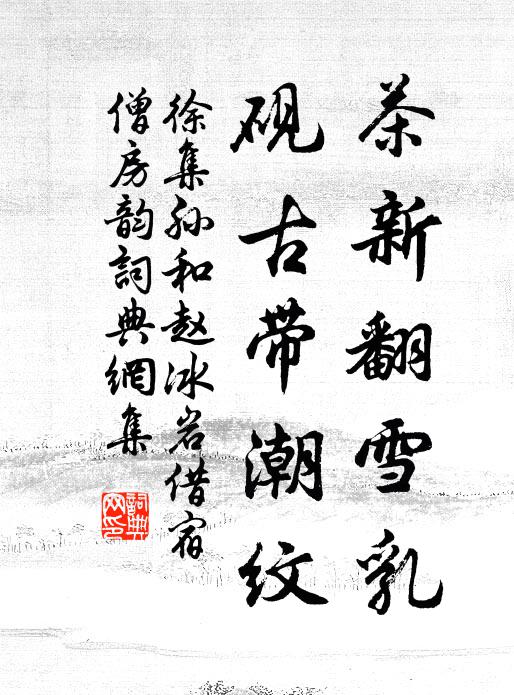 茶新翻雪乳
砚古带潮纹
徐集孙和赵冰岩借宿
僧房韵詞典網集
詞典
网印